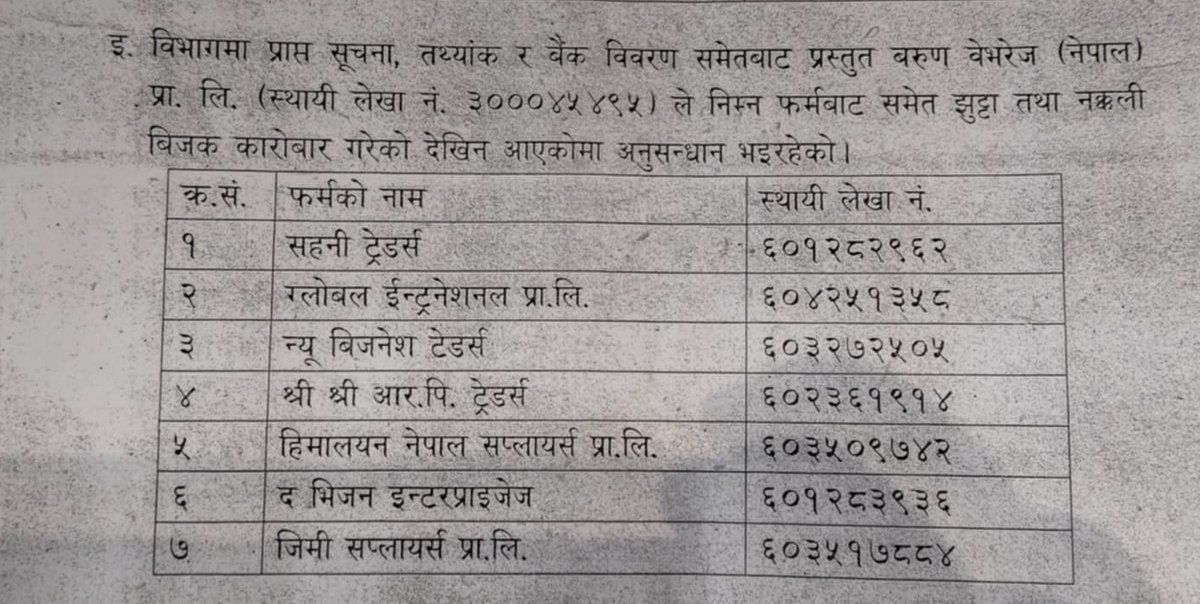 इ. विभागमा प्राप्त सूचना, तथ्यांक र बैंक विवरण समेतबाट प्रस्तुत वरुण वेभरेज (नेपाल)
प्रा. लि. (स्थायी लेखा नं. ३०००४५४९५) ले निम्न फर्मबाट समेत झुट्टा तथा नक्कली
बिजक कारोबार गरेको देखिन आएकोमा अनुसन्धान भइरहेको।
क्र.सं. फर्मको नाम स्थायी लेखा नं.
१ सहनी ट्रेडर्स ६०१२८२९६२
२ ग्लोबल ईन्ट्रनेशनल प्रा.लि. ६०४२५१३५८
३ न्यू बिजनेश टेडर्स ६०३२७२५०५
४ श्री श्री आर.पि. ट्रेडर्स ६०२३६१९१४
५ हिमालयन नेपाल सप्लायर्स प्रा.लि. ६०३५०९७४२
६ द भिजन इन्टरप्राइजेज ६०१२८३९३६
७ जिमी सप्लायर्स प्रा.लि. ६०३५१७८८४